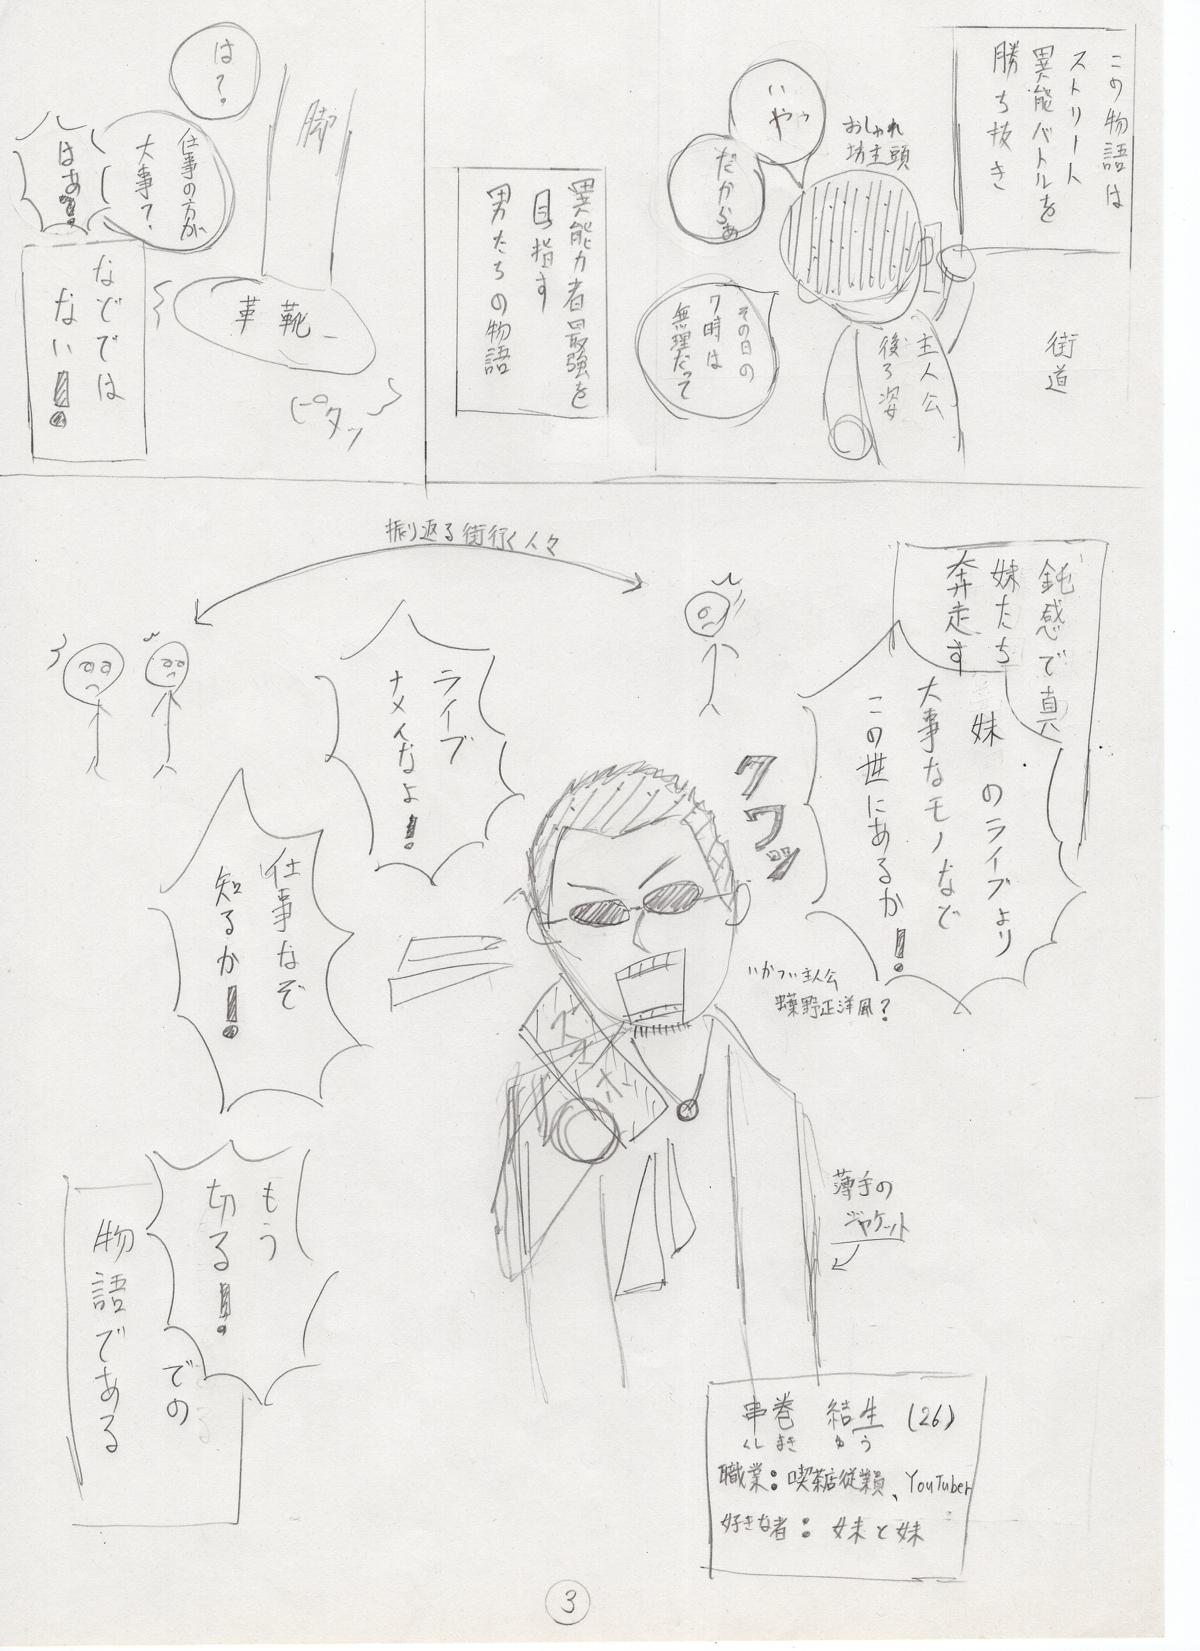 この物語は
ストリート
異能バトルを
勝ち抜き
街道
おしゃれ
坊主頭
いやっ
だからぁ
主人公
後ろ姿
その日の
7時は
無理だって
異能力者最強を
目指す
男たちの物語
脚
は?
仕事の方が
大事?
はあ!
革靴
ピタッ
などでは
ない!
振り返る街行く人々
鈍感で真
妹たち
奔走す
妹のライブより
大事なモノなど
この世にあるか!
クワッ
ライブ
ナメんなよ!
いかつい主人公
蝶野正洋風?
仕事なぞ
知るか!
スマホ
薄手の
ジャケット
もう
切る!
での
物語である
串巻 結生 (26)
くし まき ゆ う
職業:喫茶店従業員、YouTuber
好きな者:妹と妹
3